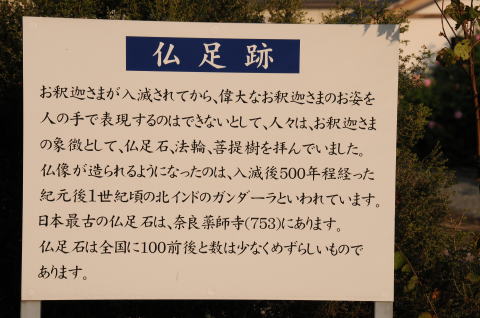 仏足跡
お釈迦さまが入滅されてから、偉大なお釈迦さまのお姿を
人の手で表現するのはできないとして、人々は、お釈迦さま
の象徴として、仏足石、法輪、菩提樹を拝んでいました。
仏像が造られるようになったのは、入滅後500年程経った
紀元後1世紀頃の北インドのガンダーラといわれています。
日本最古の仏足石は、奈良薬師寺(753)にあります。
仏足石は全国に100前後と数は少なくめずらしいもので
あります。